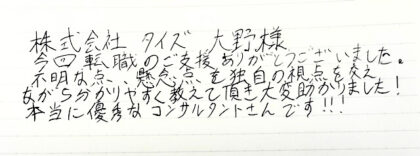 株式会社 タイズ 大野様
今回転職のご支援ありがとうございました。
不明な点、懸念点を独自の視点を交え
ながら分かりやすく教えて頂き大変助かりました!
本当に優秀なコンサルタントさんです!!!